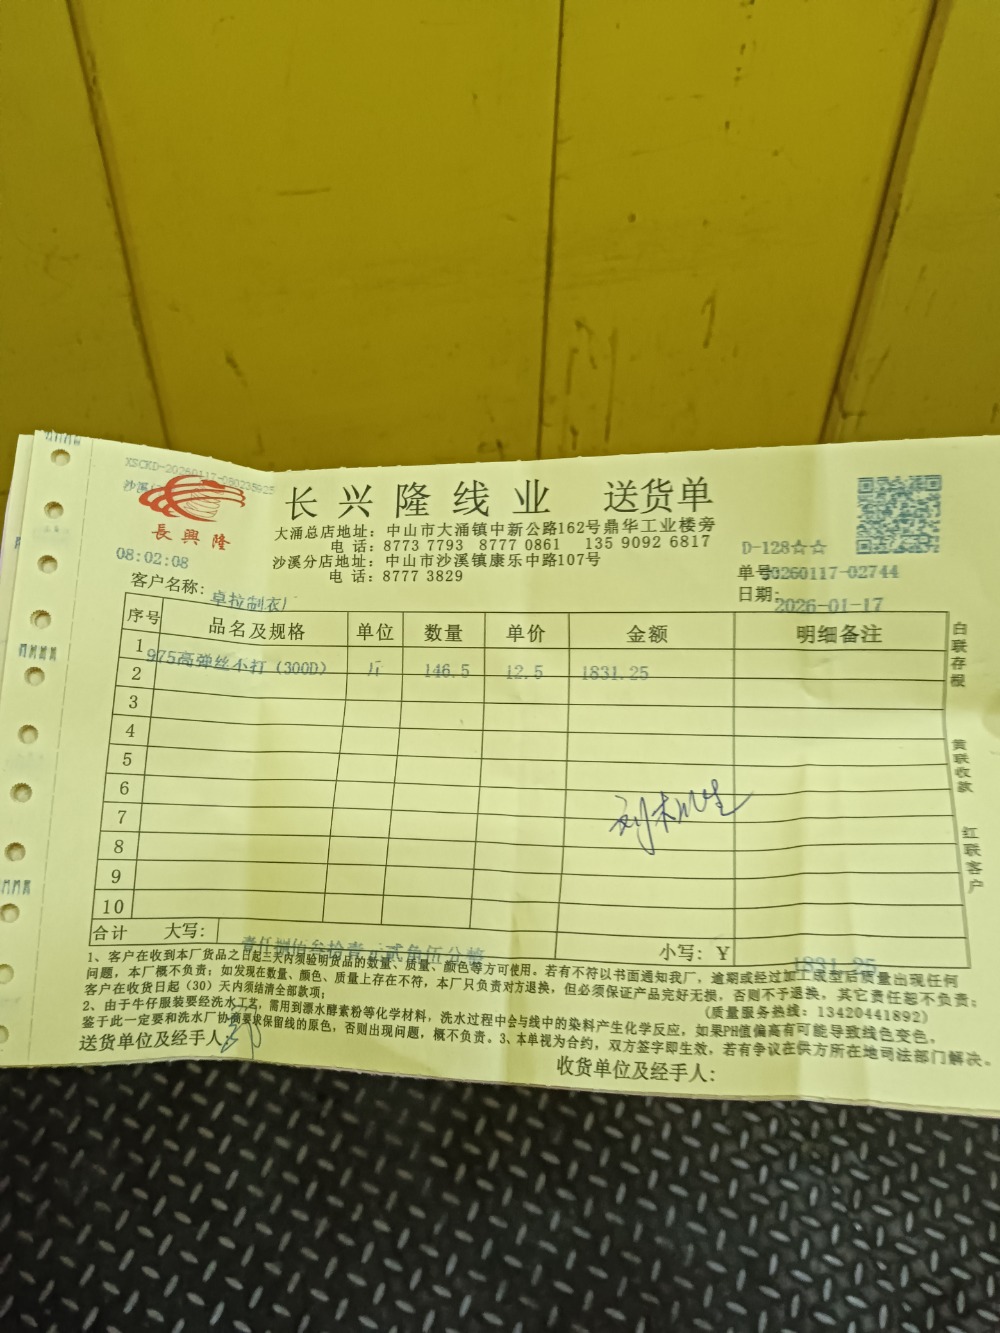 XSCKD-20260117-080235925
長興隆
08:02:08
长兴隆线业 送货单
大涌总店地址：中山市大涌镇中新公路162号鼎华工业楼旁
电 话：8773 7793 8777 0861 135 9092 6817
沙溪分店地址：中山市沙溪镇康乐中路107号
电 话：8777 3829
D-128☆☆
单号：20260117-02744
日期：2026-01-17
客户名称：卓拉制衣厂
序号 品名及规格 单位 数量 单价 金额 明细备注
1 975高弹丝小打（300D） 146.5 12.5 1831.25
2
3
4
5
6
7
8
9
10
合计 大写：壹仟捌佰叁拾壹元贰角伍分整 小写：￥ 1831.25
白联存根
黄联收款
红联客户
1、客户在收到本厂货品之日起三天内须验明货品的数量、质量、颜色等方可使用。若有不符以书面通知我厂，逾期或经过加工成型后质量出现任何
问题，本厂概不负责；如发现在数量、颜色、质量上存在不符，本厂只负责对方退换，但必须保证产品完好无损，否则不予退换，其它责任恕不负责；
客户在收货日起（30）天内须结清全部款项；
(质量服务热线：13420441892)
2、由于牛仔服装要经洗水工艺，需用到漂水酵素粉等化学材料，洗水过程中会与线中的染料产生化学反应，如果PH值偏高有可能导致线色变色，
鉴于此一定要和洗水厂协商要求保留线的原色，否则出现问题，概不负责。3、本单视为合约，双方签字即生效，若有争议在供方所在地司法部门解决。
送货单位及经手人：
收货单位及经手人：